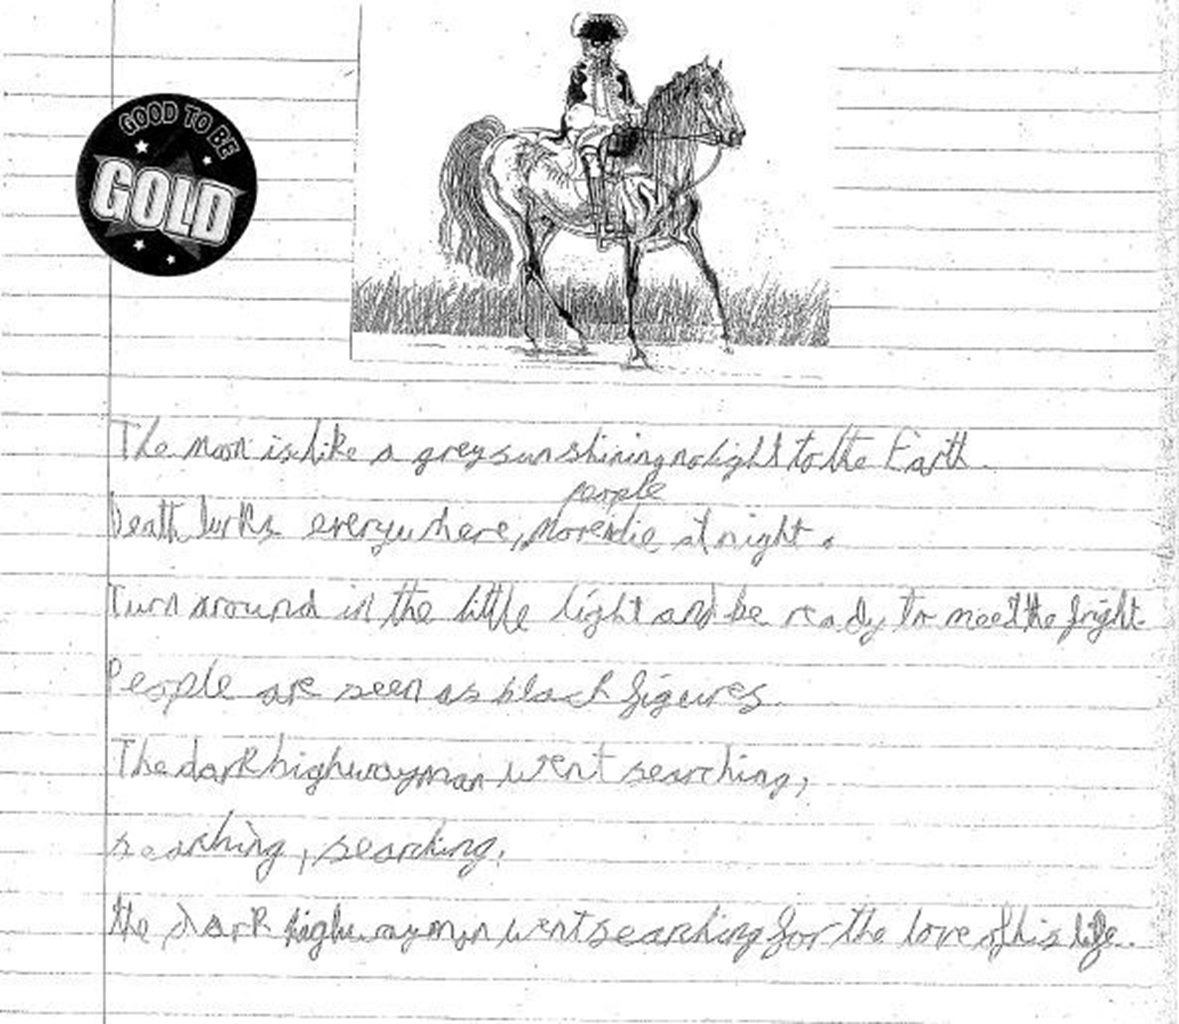 GOOD TO BE
GOLD
The moon is like a grey sun shining no light to the Earth.
people
Death lurks everywhere, more die at night.
Turn around in the little light and be ready to meet the fright.
People are seen as black figures.
The dark highwayman went searching,
searching, searching.
the dark highwayman went searching for the love of his life.